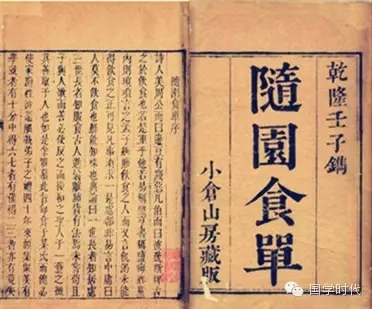 乾隆壬子鐫
隨園食單
小倉山房藏版
隨園食單序
詩人美周公而曰籩豆有踐惡凡伯而曰彼疏斯稗古
之於飲食也若是重乎他若易稱鼎烹書稱鹽梅鄉黨
內則瑣瑣言之孟子雖賤飲食之人而又言飢渴未能
得飲食之正可見凡事須求一是處都非易言中庸曰
人莫不飲食也鮮能知味也典論曰一世長者知居處
三世長者知服食古人進鬐離肺皆有法焉未嘗苟且
子與人歌而善必使反之而後和之聖人于一藝之微
其善取于人也如是余雅慕此旨每食于某氏而飽必
使家廚往彼竈觚執弟子之禮四十年來頗集眾美有
學就者有十分中得六七者有僅得二三者亦有竟失
国学时代